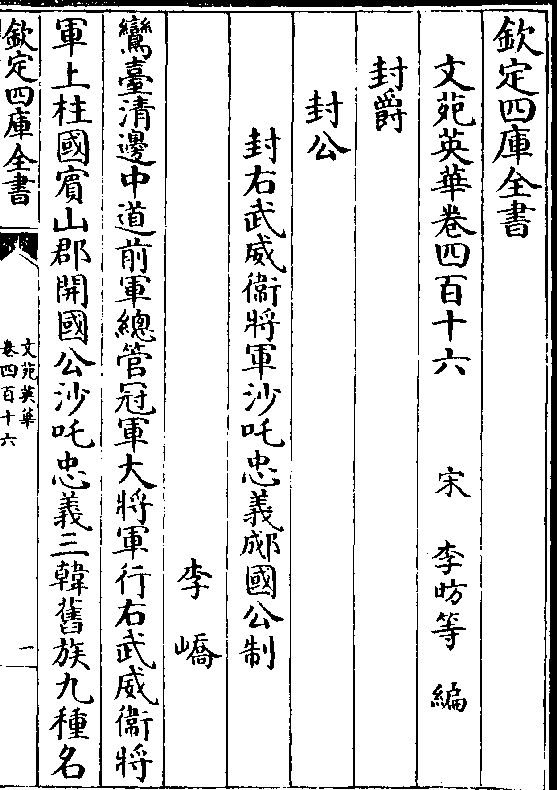 欽定四庫全書
文苑英華卷四百十六　宋　李昉等　編
封爵
封公
封右武威衞將軍沙吒忠義郕國公制
李嶠
鸞臺清邊中道前軍總管冠軍大將軍行右武威衞將
軍上柱國賓山郡開國公沙吒忠義三韓舊族九種名
欽定四庫全書
文苑英華
卷四百十六
一